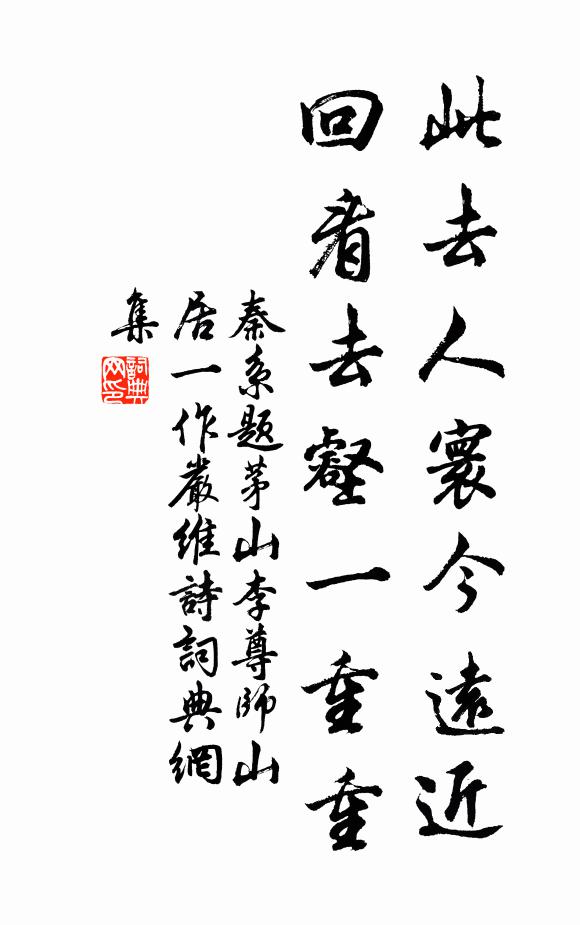 此去人寰今遠近
回看去壑一重重
秦系題茅山李尊師山
居一作嚴維詩詞典網
集
詞典
网印